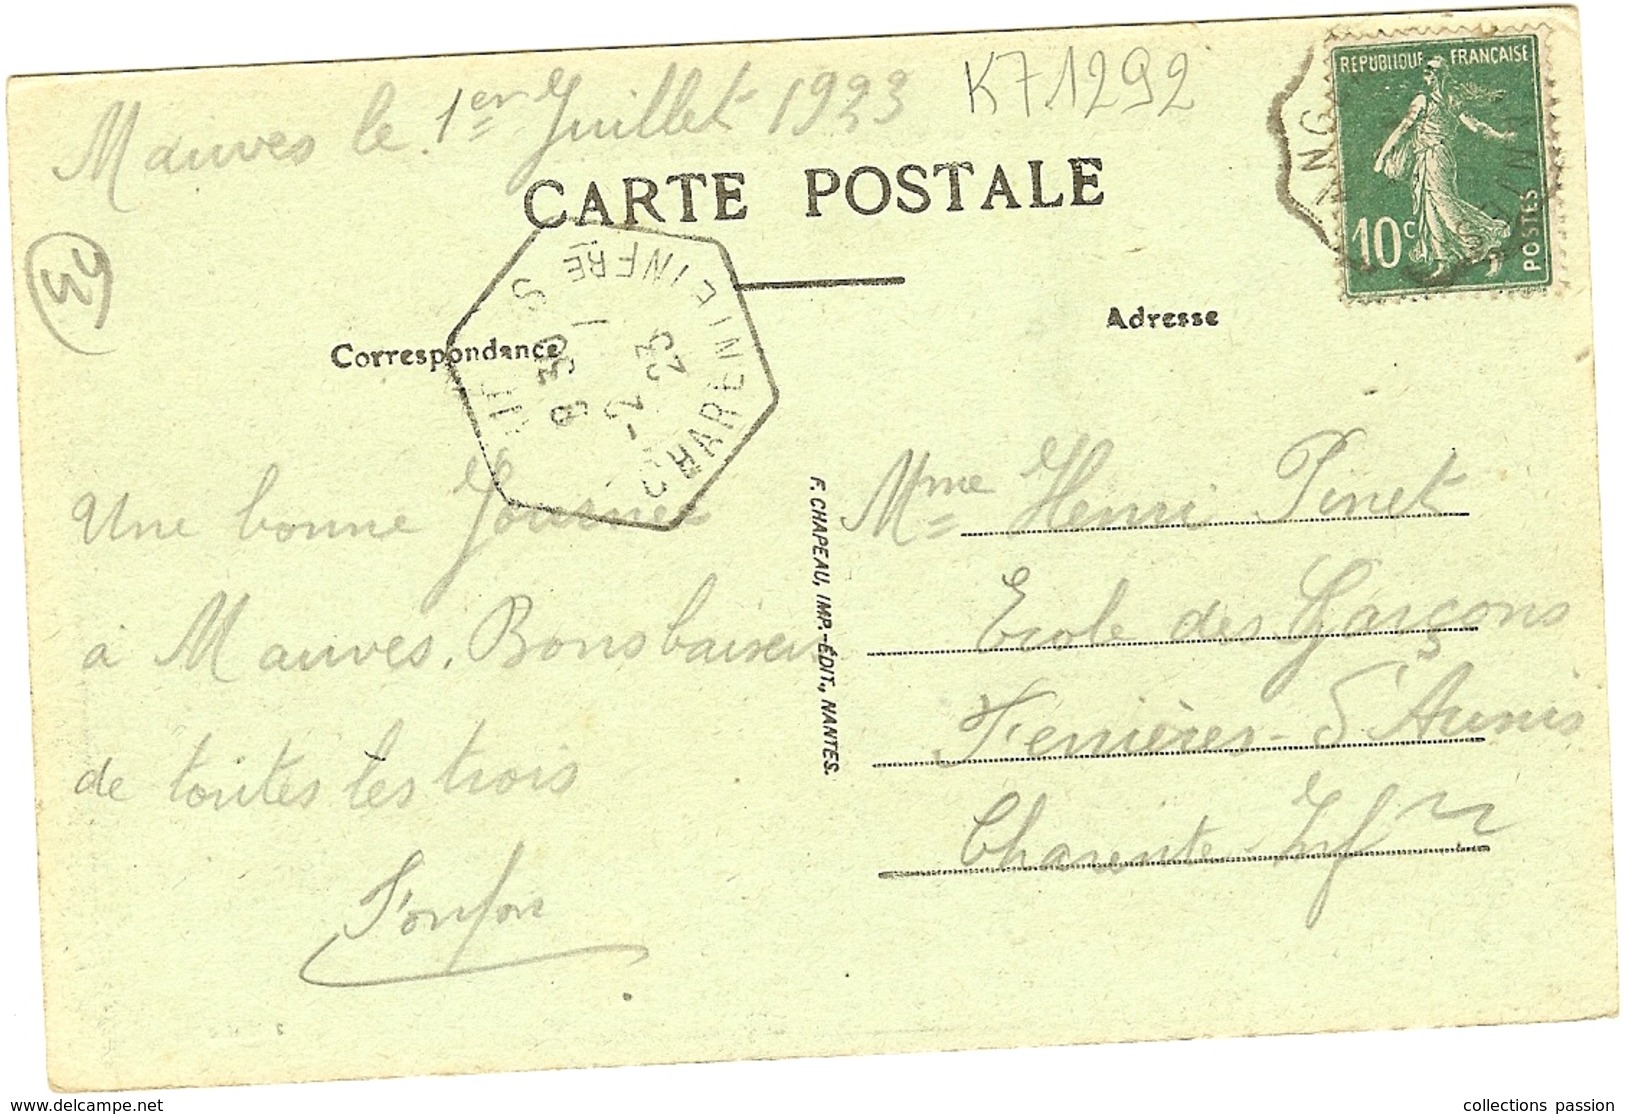 Mauves le 1er Juillet 1923
K71292
RÉPUBLIQUE FRANÇAISE
10c
POSTES
CARTE POSTALE
44
Correspondance
Adresse
8 30
-2 -7
23
CHARENTE INFRE
Une bonne Journée
à Mauves. Bons baisers
de toutes les trois
Fonfon
F. CHAPEAU, IMP.-ÉDIT., NANTES.
Mme Henri Pinet
Ecole des Garçons
Ferrières-d'Aunis
Charente-Infre
www.delcampe.net
collections passion